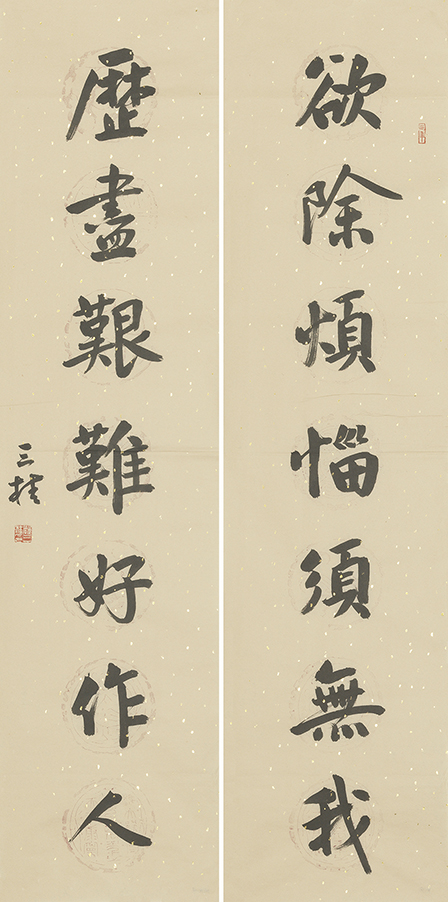 欲除煩惱須無我
歷盡艱難好作人